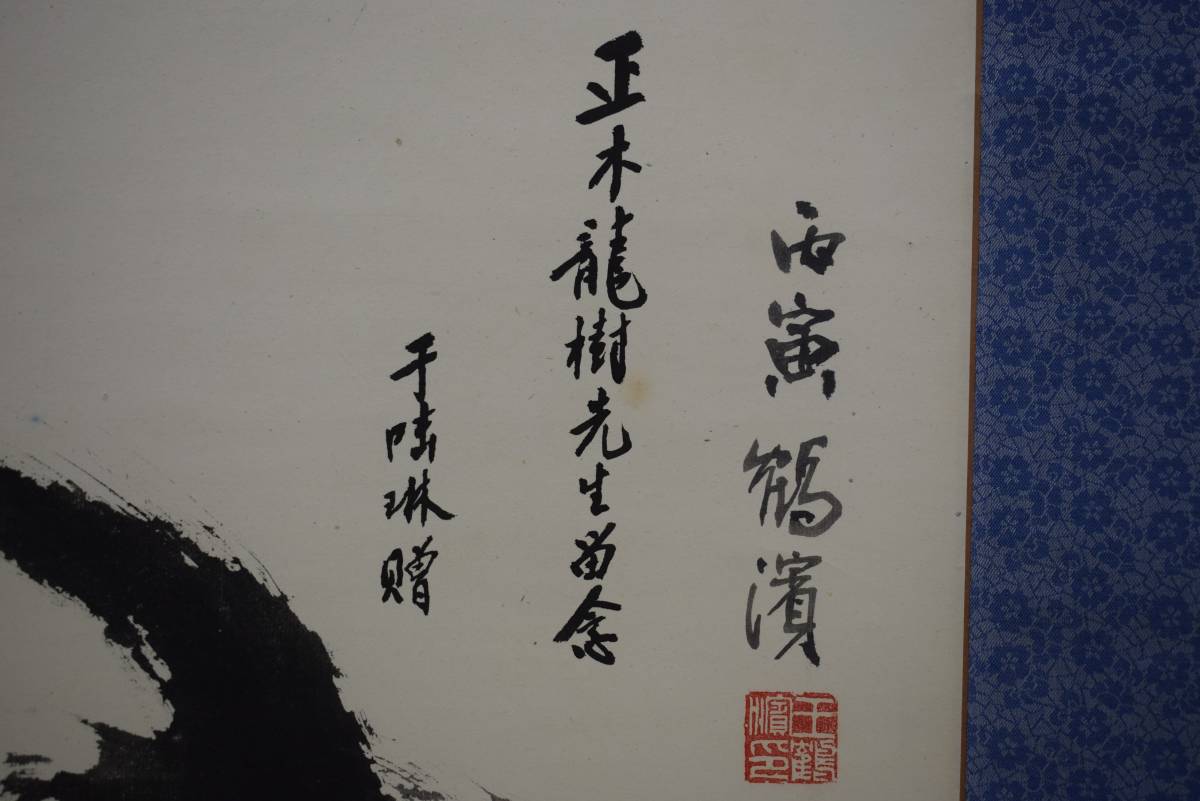 丙寅鶴濱
王鶴濱印
正木龍樹先生留念
于陆琳赠